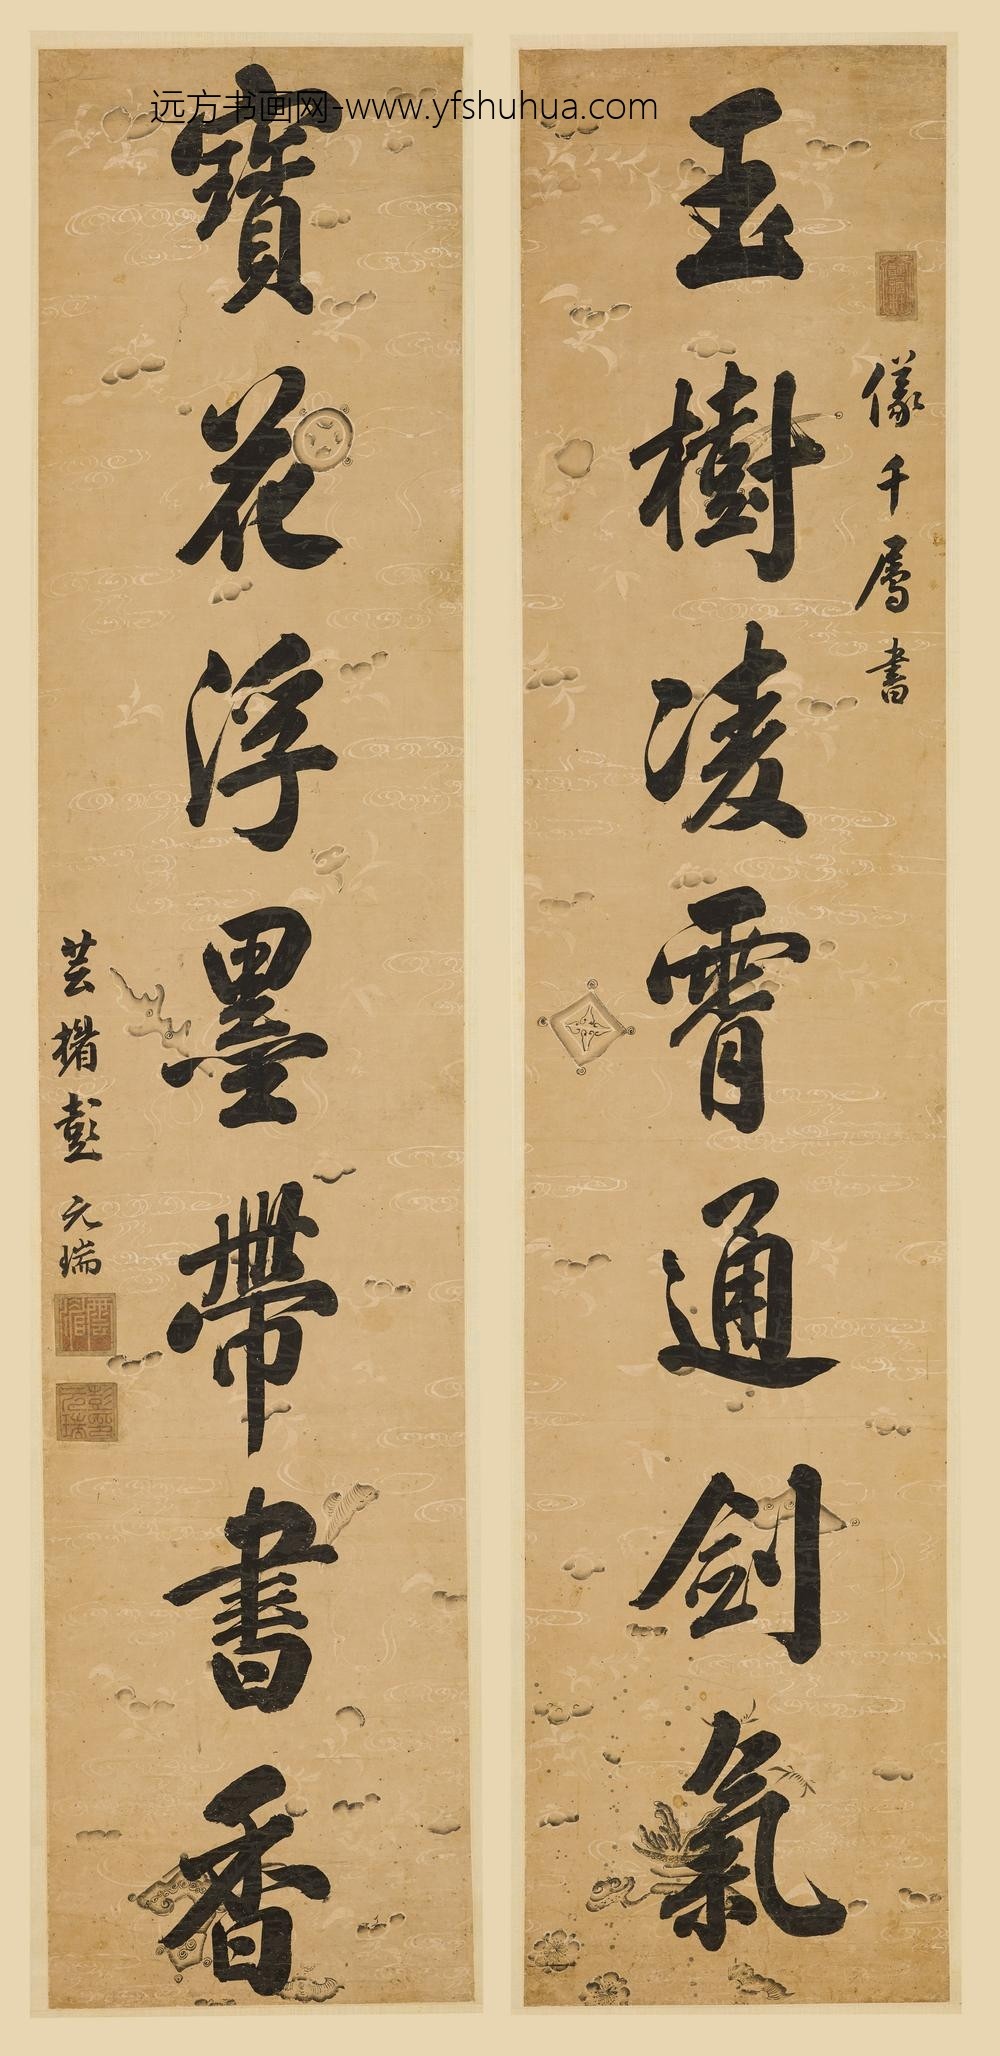 远方书画网-www.yfshuhua.com
儀千屬書
玉樹凌霄通劍氣
寶花浮墨帶書香
芸楣彭元瑞